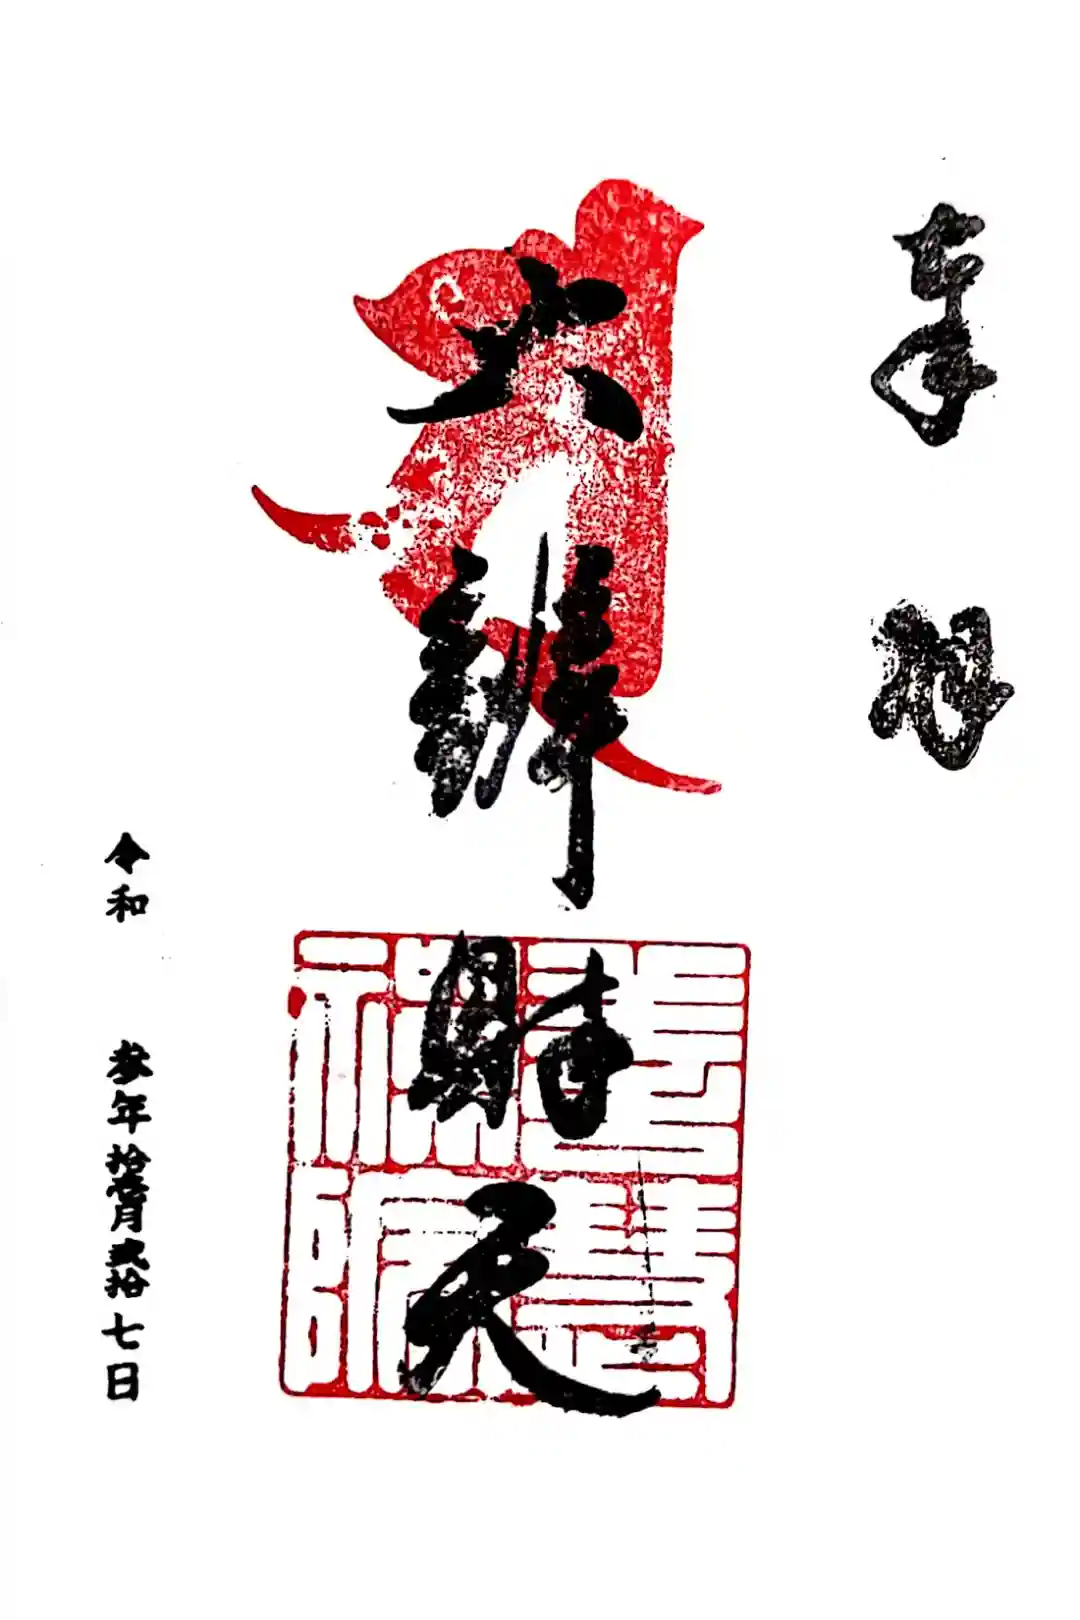 奉拝
大辨財天
令和 参年拾壱月弐拾七日